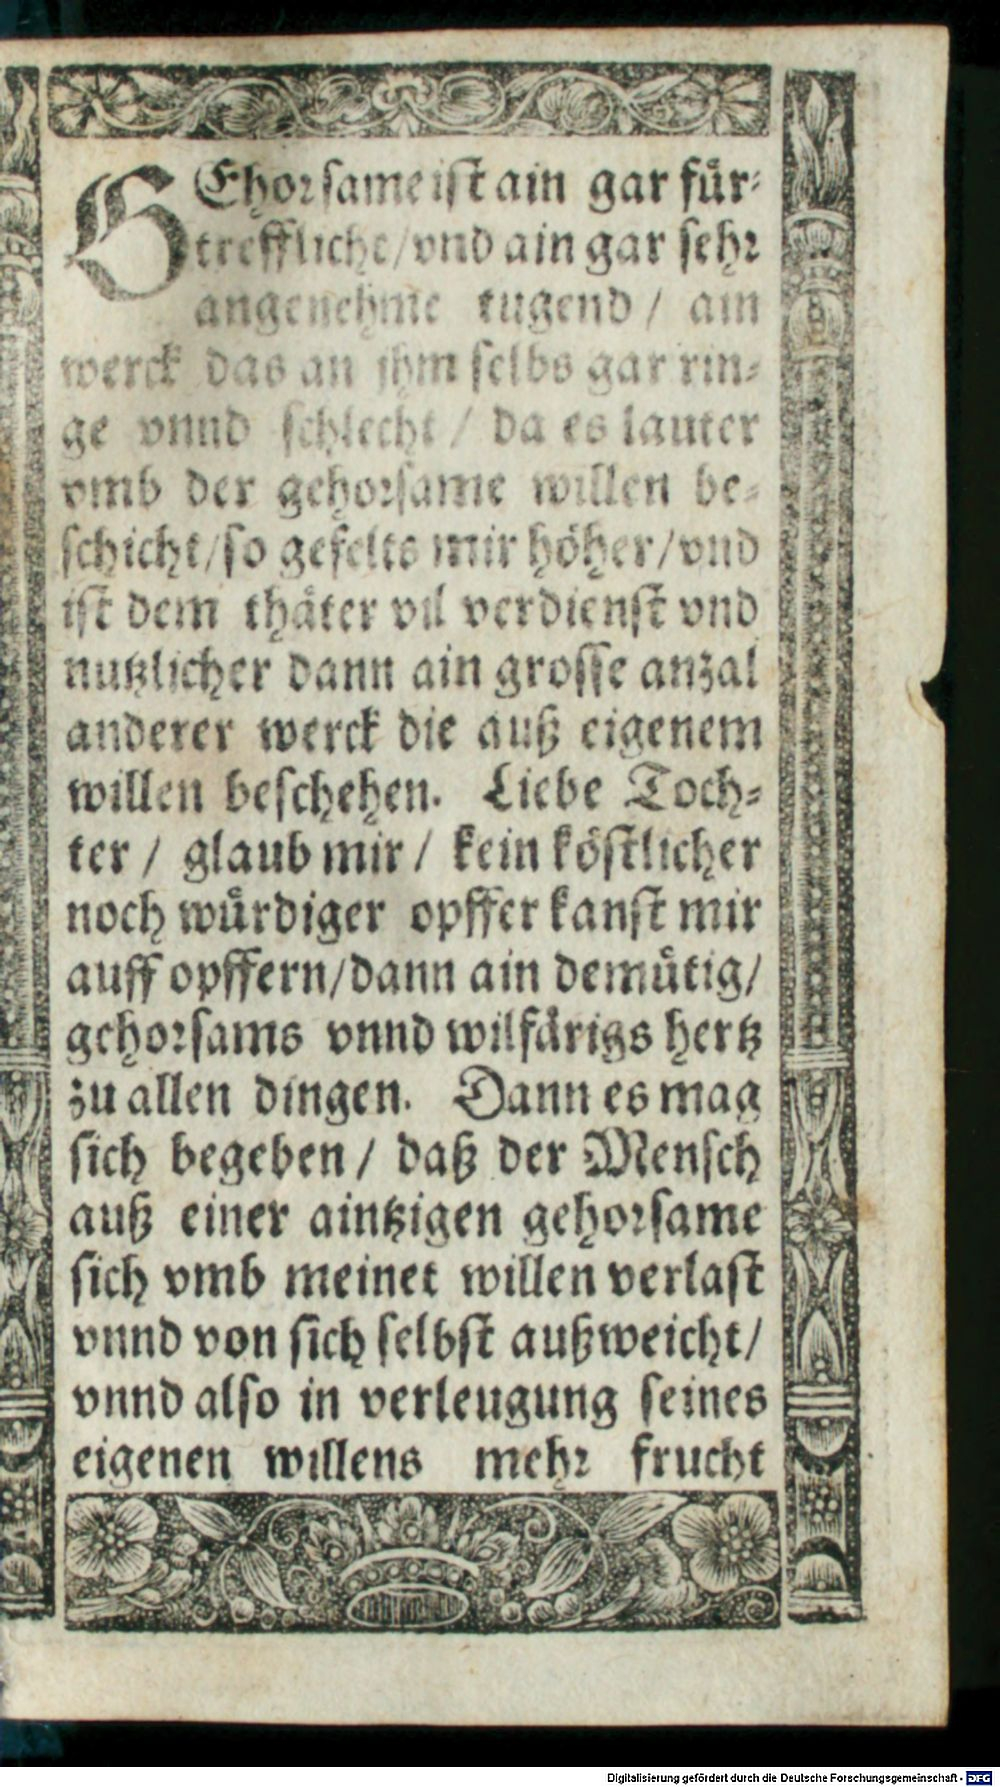 GEhorsame ist ain gar für-
treffliche/vnd ain gar sehr
angenehme tugend/ ain
werck das an jhm selbs gar rin-
ge vnnd schlecht/ da es lauter
vmb der gehorsame willen be-
schicht/so gefelts mir höher/vnd
ist dem thäter vil verdienst vnd
nutzlicher dann ain grosse anzal
anderer werck die auß eigenem
willen beschehen. Liebe Toch-
ter/ glaub mir/ kein köstlicher
noch würdiger opffer kanst mir
auff opffern/dann ain demütig/
gehorsams vnnd wilfärigs hertz
zu allen dingen. Dann es mag
sich begeben/ daß der Mensch
auß einer aintzigen gehorsame
sich vmb meinet willen verlast
vnnd von sich selbst außweicht/
vnnd also in verleugung seines
eigenen willens mehr frucht
Digitalisierung gefördert durch die Deutsche Forschungsgemeinschaft - DFG